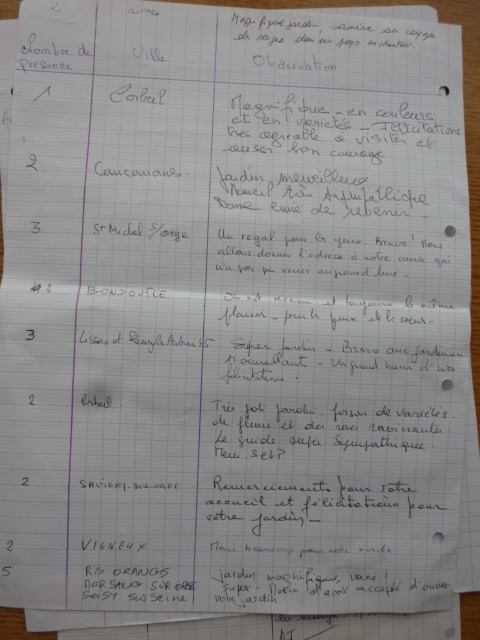 Magnifique jardin,
Nombre de personne Ville Observation
1 Corbeil Magnifique - en couleurs
et en variétés - Félicitations
très agréable à visiter et
bon courage
2 Jardin merveilleux
Accueil très sympathique
Donne envie de revenir -
3 St Michel S/Orge Un régal pour les yeux. Bravo! Nous
allons donner l'adresse à notre amie qui
n'a pas pu venir aujourd'hui.
2 BONDOUFLE On est revenu et toujours le même
plaisir - pour les yeux et le coeur.
3 Lisses et Super jardin - Bravo aux
accueillant - Un grand merci
félicitations.
2 Corbeil Très joli jardin. foison de variétés
de fleurs et des roses ravissantes.
Le guide super sympathique.
Merci.
2 SAVIGNY-SUR-ORGE Remerciements pour votre
accueil et félicitations pour
votre jardin -
2 VIGNEUX Merci beaucoup pour cette visite
5 RIS ORANGIS jardin magnifique, varié!
MORSANG SUR ORGE super - Merci d'avoir accepté d'ouvrir
SOISY SUR SEINE votre jardin